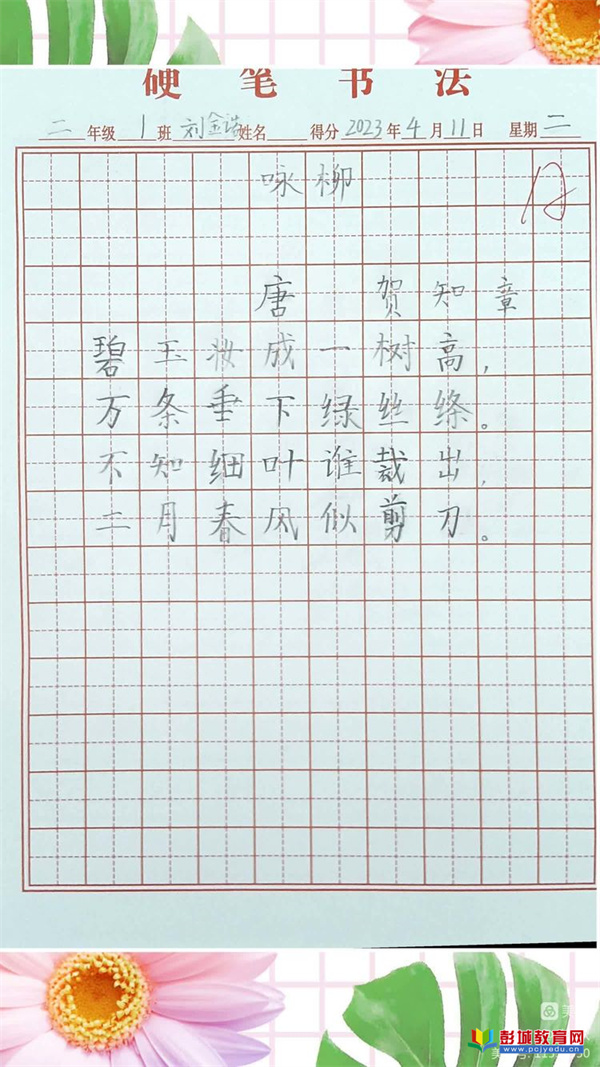 硬笔书法
二年级1班刘金诺姓名 得分2023年4月11日 星期二
咏柳
唐 贺知章
碧玉妆成一树高,
万条垂下绿丝绦。
不知细叶谁裁出,
二月春风似剪刀。
彭城教育网
www.pcjyedu.cn